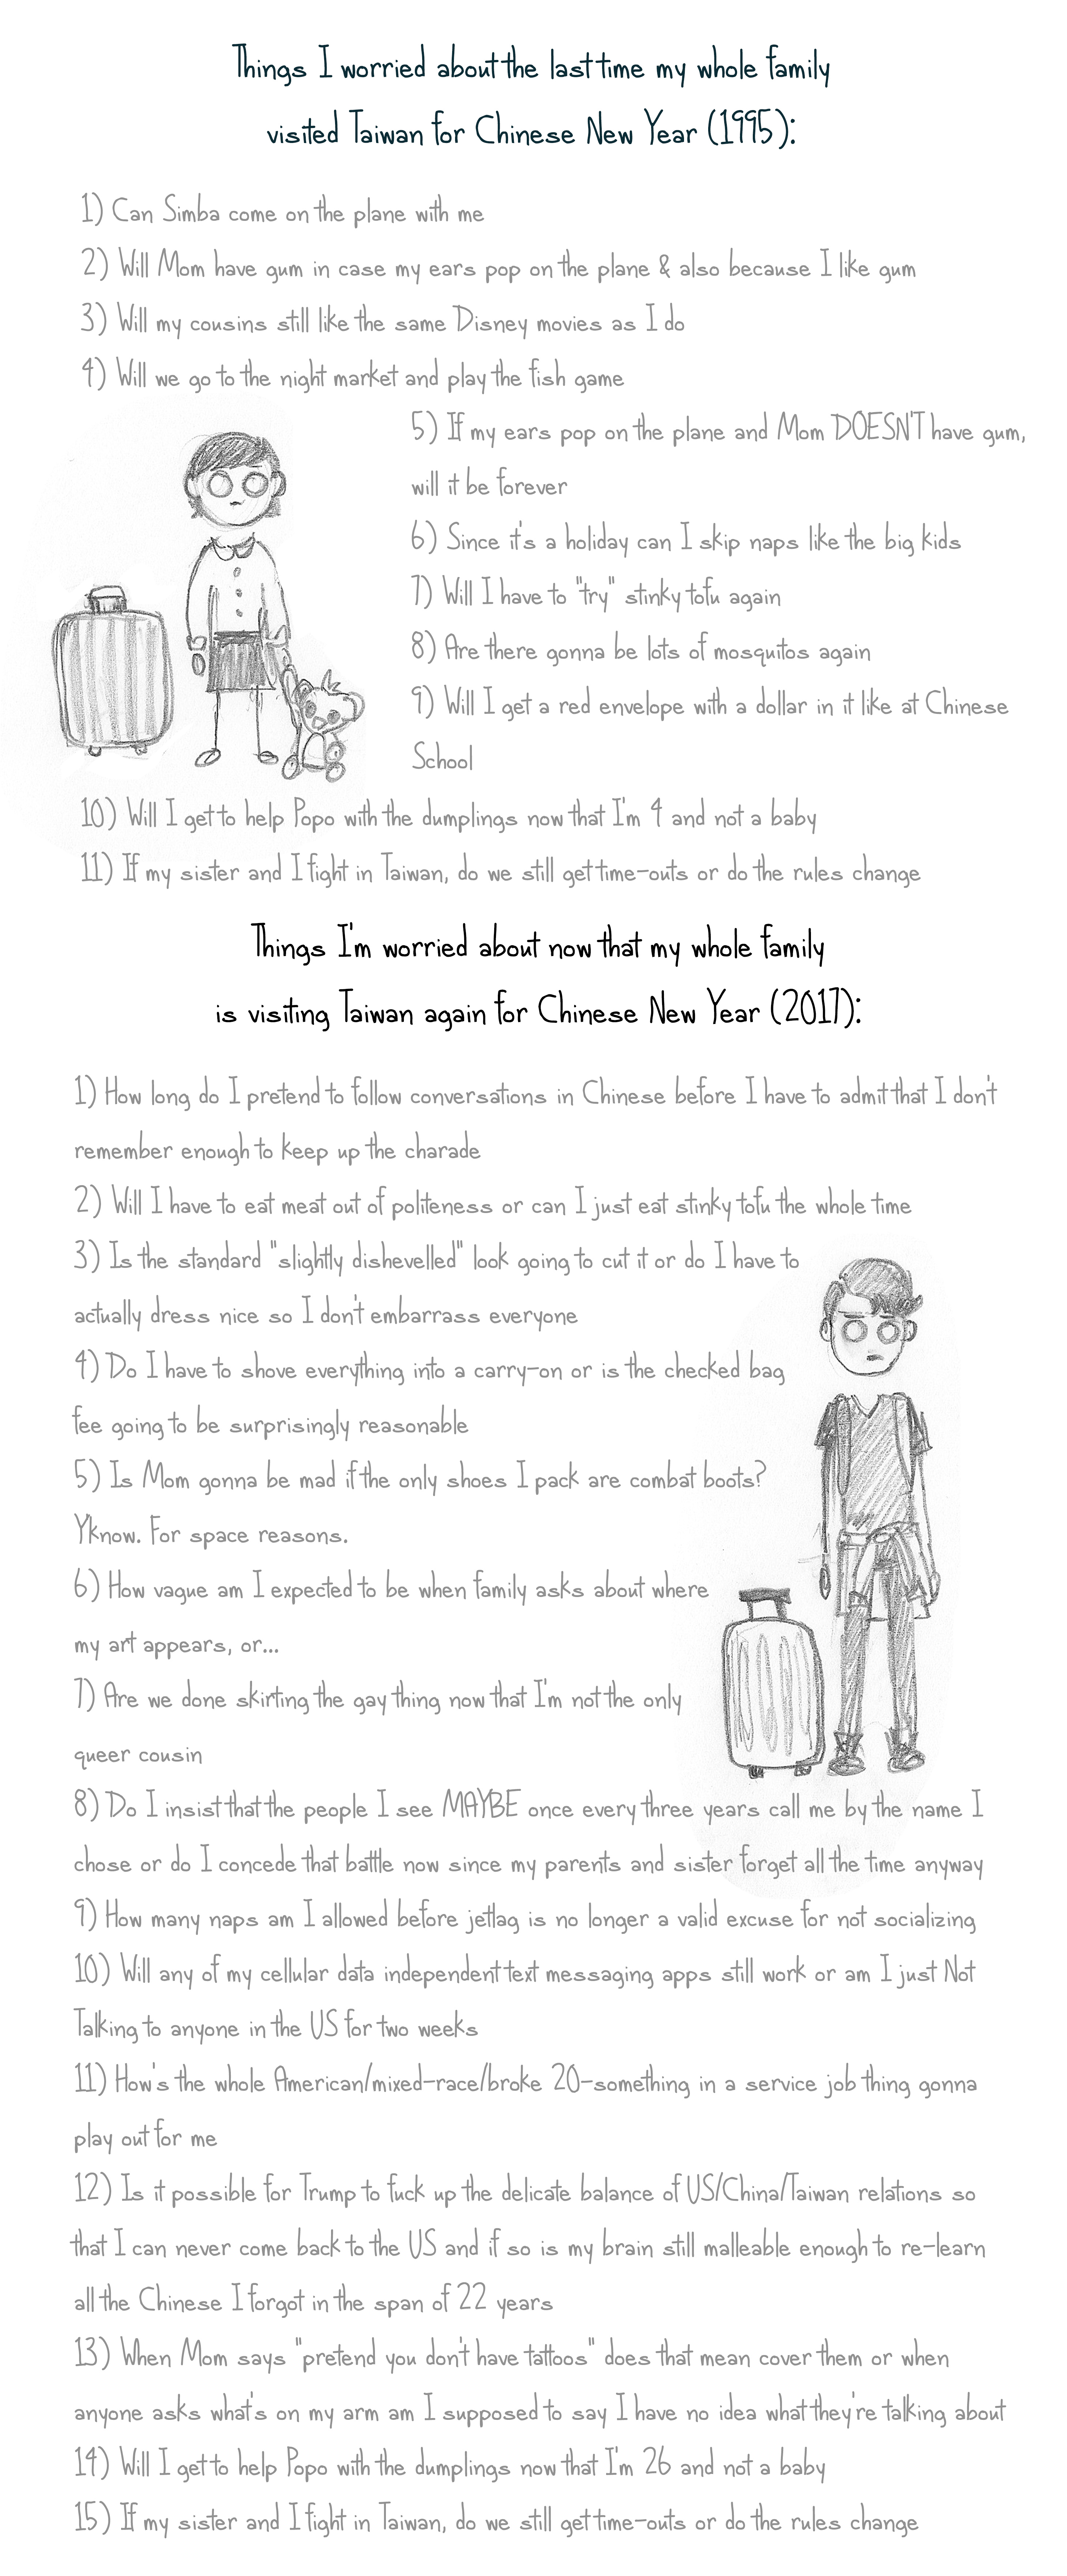 Things I worried about the last time my whole family
visited Taiwan for Chinese New Year (1995):
1) Can Simba come on the plane with me
2) Will Mom have gum in case my ears pop on the plane & also because I like gum
3) Will my cousins still like the same Disney movies as I do
4) Will we go to the night market and play the fish game
5) If my ears pop on the plane and Mom DOESN'T have gum,
will it be forever
6) Since it's a holiday can I skip naps like the big kids
7) Will I have to "try" stinky tofu again
8) Are there gonna be lots of mosquitos again
9) Will I get a red envelope with a dollar in it like at Chinese
School
10) Will I get to help Popo with the dumplings now that I'm 4 and not a baby
11) If my sister and I fight in Taiwan, do we still get time-outs or do the rules change
Things I'm worried about now that my whole family
is visiting Taiwan again for Chinese New Year (2017):
1) How long do I pretend to follow conversations in Chinese before I have to admit that I don't
remember enough to keep up the charade
2) Will I have to eat meat out of politeness or can I just eat stinky tofu the whole time
3) Is the standard "slightly dishevelled" look going to cut it or do I have to
actually dress nice so I don't embarrass everyone
4) Do I have to shove everything into a carry-on or is the checked bag
fee going to be surprisingly reasonable
5) Is Mom gonna be mad if the only shoes I pack are combat boots?
Yknow. For space reasons.
6) How vague am I expected to be when family asks about where
my art appears, or...
7) Are we done skirting the gay thing now that I'm not the only
queer cousin
8) Do I insist that the people I see MAYBE once every three years call me by the name I
chose or do I concede that battle now since my parents and sister forget all the time anyway
9) How many naps am I allowed before jetlag is no longer a valid excuse for not socializing
10) Will any of my cellular data independent text messaging apps still work or am I just Not
Talking to anyone in the US for two weeks
11) How's the whole American/mixed-race/broke 20-something in a service job thing gonna
play out for me
12) Is it possible for Trump to fuck up the delicate balance of US/China/Taiwan relations so
that I can never come back to the US and if so is my brain still malleable enough to re-learn
all the Chinese I forgot in the span of 22 years
13) When Mom says "pretend you don't have tattoos" does that mean cover them or when
anyone asks what's on my arm am I supposed to say I have no idea what they're talking about
14) Will I get to help Popo with the dumplings now that I'm 26 and not a baby
15) If my sister and I fight in Taiwan, do we still get time-outs or do the rules change